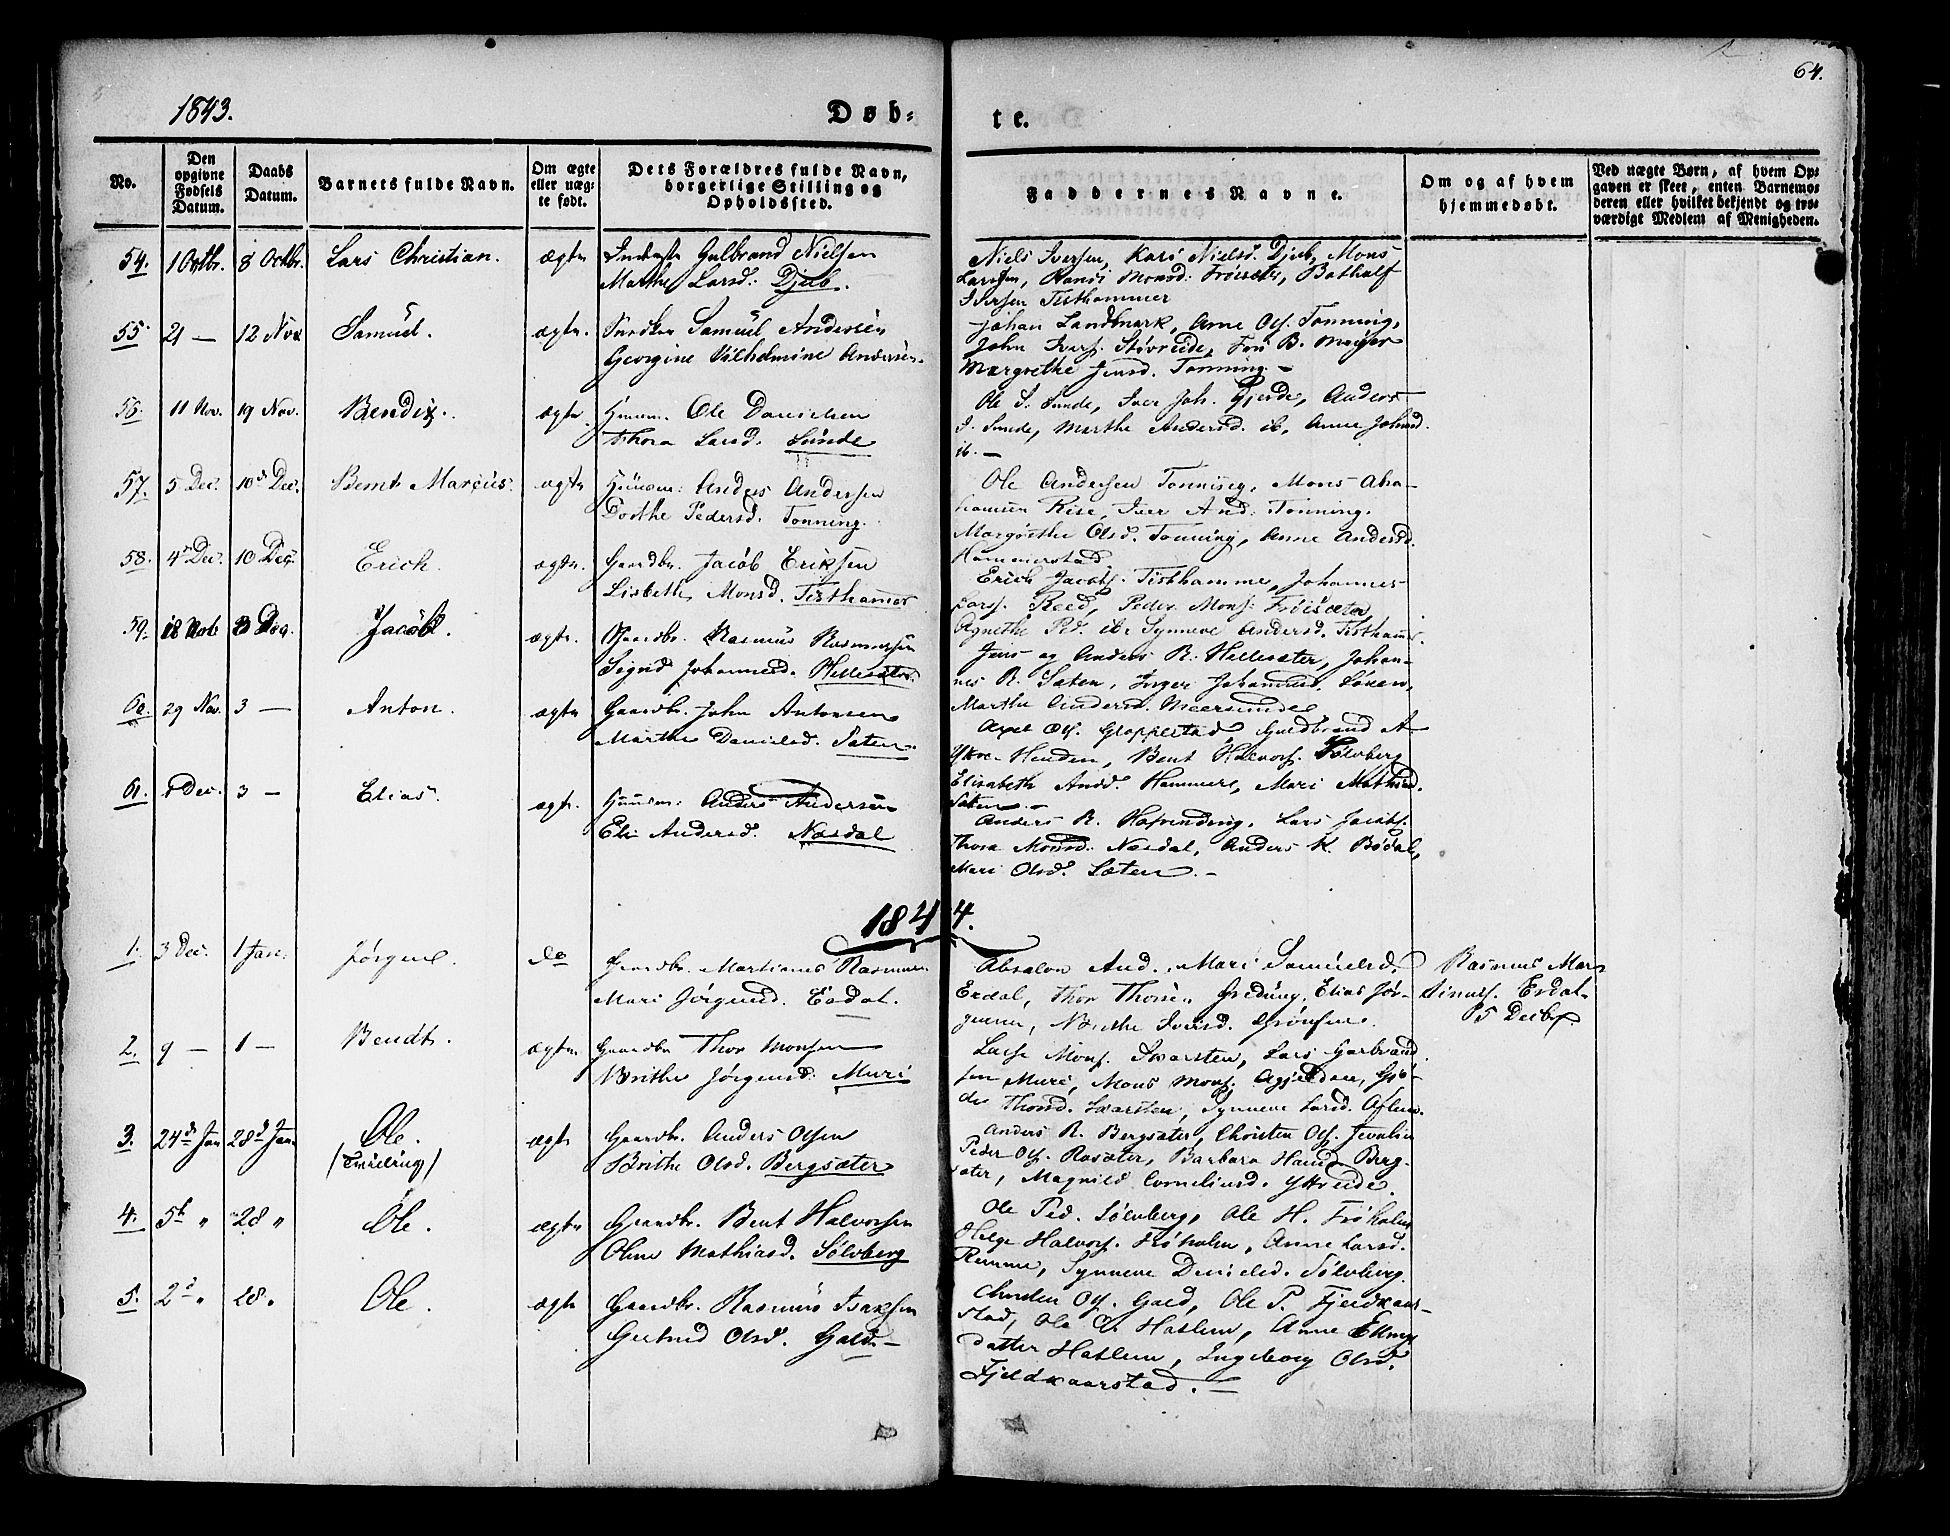 64.
1843.
Døb-
te.
No.
Den opgivne Fødsels Datum.
Daabs Datum.
Barnets fulde Navn.
Om ægte eller uæg-te født.
Dets Forældres fulde Navn, borgerlige Stilling og Opholdssted.
Faddernes Navne.
Om og af hvem hjemmedøbt.
Ved uægte Børn, af hvem Op-gaven er skeet, enten Barnemo-deren eller hvilket bekjendt og tro-værdigt Medlem af Menigheden.
54. 1 Octbr. 8 Octbr. Lars Christian. ægte Gulbrand Nielsen
Marthe Larsd: Djub.
Niels Iversen, Kari Nielsd. Djub, Mons
Larssen, Randi Monsd: Frøisæt,
Iversen Tisthammer
55. 21 — 12 Nov Samuel. ægte. Snedker Samuel Andersen
Georgine Vilhelmine Andersen.
Johan Landmark, Arne Ols. Tonning,
John Ivers. Støvreide, B. Meyer
Margrethe Jensd. Tonning. —
56. 11 Nov. 19 Nov. Bendix. ægte Huusm. Ole Danielsen
Thora Larsd. Sunde
Ole S. Sunde, Iver Joh. Gjerde, Anders
I. Sunde, Marthe Andersd. ib, Anne Johnsd.
ib. —
57. 5 Dec. 10d Dec. Bernt Marcus. ægte Huusm: Anders Andersen
Dorthe Pedersd. Tonning.
Ole Andersen Tonning, Mons Abra-
hamsen Rise, Iver And: Tonning.
Margrethe Olsd. Tonning, Anne Andersd.
Hammerstad
58. 4 Dec. 10 Dec. Erich. ægte. Gaardbr. Jacob Eriksen
Lisbeth Monsd. Tisthammer
Erich Jacobs. Tisthamme, Johannes
Larss. Reed, Peder Mons: Frøisæter
Agnethe Pd. ib. Synneve Andersd. Tisthammer
59. 18 Nob 3 Dec. Jacob. ægte. Gaardbr. Rasmus Rasmussen
Signd Johannesd. Hellesæter
Jens og Anders R. Hellesæter, Johan-
nes R. Sæten, Inger Johannesd.
Marthe Andersd.
60. 29 Nov. 3 — Anton. ægte Gaardbr. John Antonsen
Marthe Danielsd. Sæten.
Axel Ols. Gloppestad, Guldbrand A
Henden, Bent Halvors. Sølvberg
Elisabeth Andd. Hammere, Mari Mathisd.
Sæten. —
61. 1 Dec. 3 — Elias. ægte. Huusm: Anders Andersen
Eli Andersd. Næsdal
Anders R. Lars Jacobs.
Thora Monsd: Næsdal, Anders K. Bødal,
Mari Olsd. Sæten. —
1844.
1. 3 Dec. 1 Jan. Jørgen. do Gaardbr. Martinus Rasmusen
Mari Jørgensd. Erdal.
Absalon And. Mari Samuelsd.
Erdal, Thor Thorsen Elias Jør-
gensen, Birthe Iversd.
Rasmus Mar
tinuss. Erdal
5 Decbr.
2. 9 — 1 — Bendt. ægte Gaardbr Thor Monsen
Brithe Jørgensd: Muri
Lasse Mons. Svarsten, Lars Garbrand
sen Muri, Mons Mons. Agjeldsen, Gjø-
de Thorsd. Svarsten, Synneve Larsd. Aflem.
3. 24de Jan 28d Jan. Ole. (Tvilling) ægte Gaardbr. Anders Olsen
Brithe Olsd. Bergsæter
Anders R. Bergsæter, Christen Ols.
Peder Ols. Rosæter, Barbara Hansd Berg-
sæter, Magnild Corneliusd. Yttreide.
4. 5t " 28 " Ole. ægte Gaardbr. Bent Halvorsen
Oline Mathiasd. Sølvberg
Ole Ped. Sølvberg, Ole H. Frøholm
Helge Halvors. Frøholm, Anne Larsd.
Remme, Synneve Danielsd. Sølvberg.
5. 2d " 28 " Ole. ægte Gaardbr. Rasmus Isaksen
Gertrud Olsd. Gald —
Christen Ols. Gald, Ole P. Fjeldkaar-
stad, Ole O. Haslem, Anne
datter Haslem, Ingeborg Olsd.
Fjeldkaarstad. —